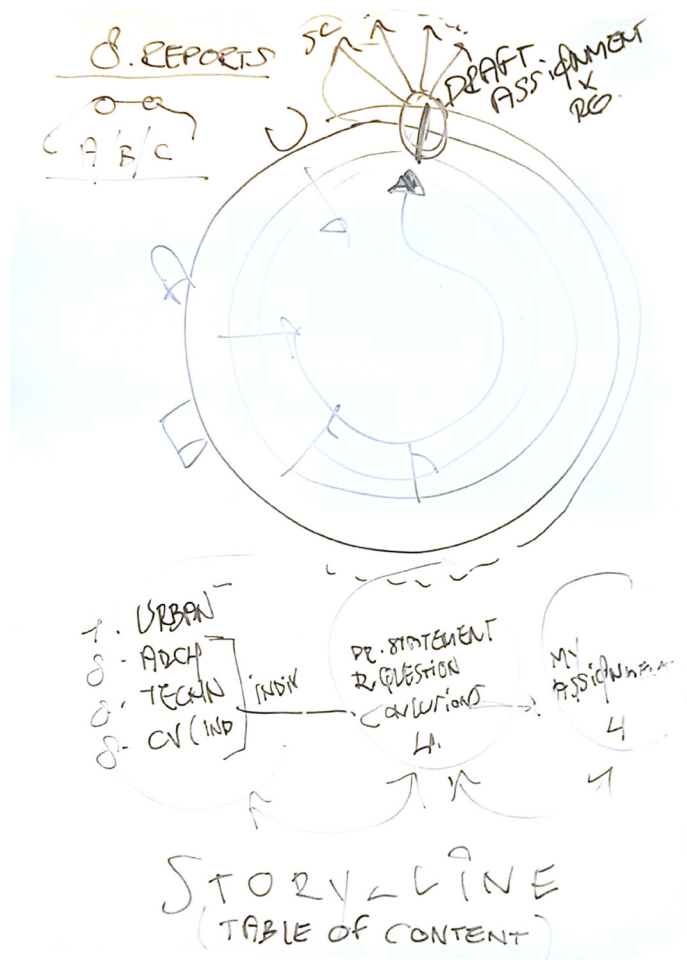 8. REPORTS
A B/C
DRAFT
ASSIGNMENT
X
RQ.
1. URBAN
8. ARCH
8. TECHN
8. CV (IND
INDIV
PR. STATEMENT
R. QUESTION
CONCLUTIONS
4.
MY
ASSIGNMENT
4
STORY-LINE
(TABLE OF CONTENT)